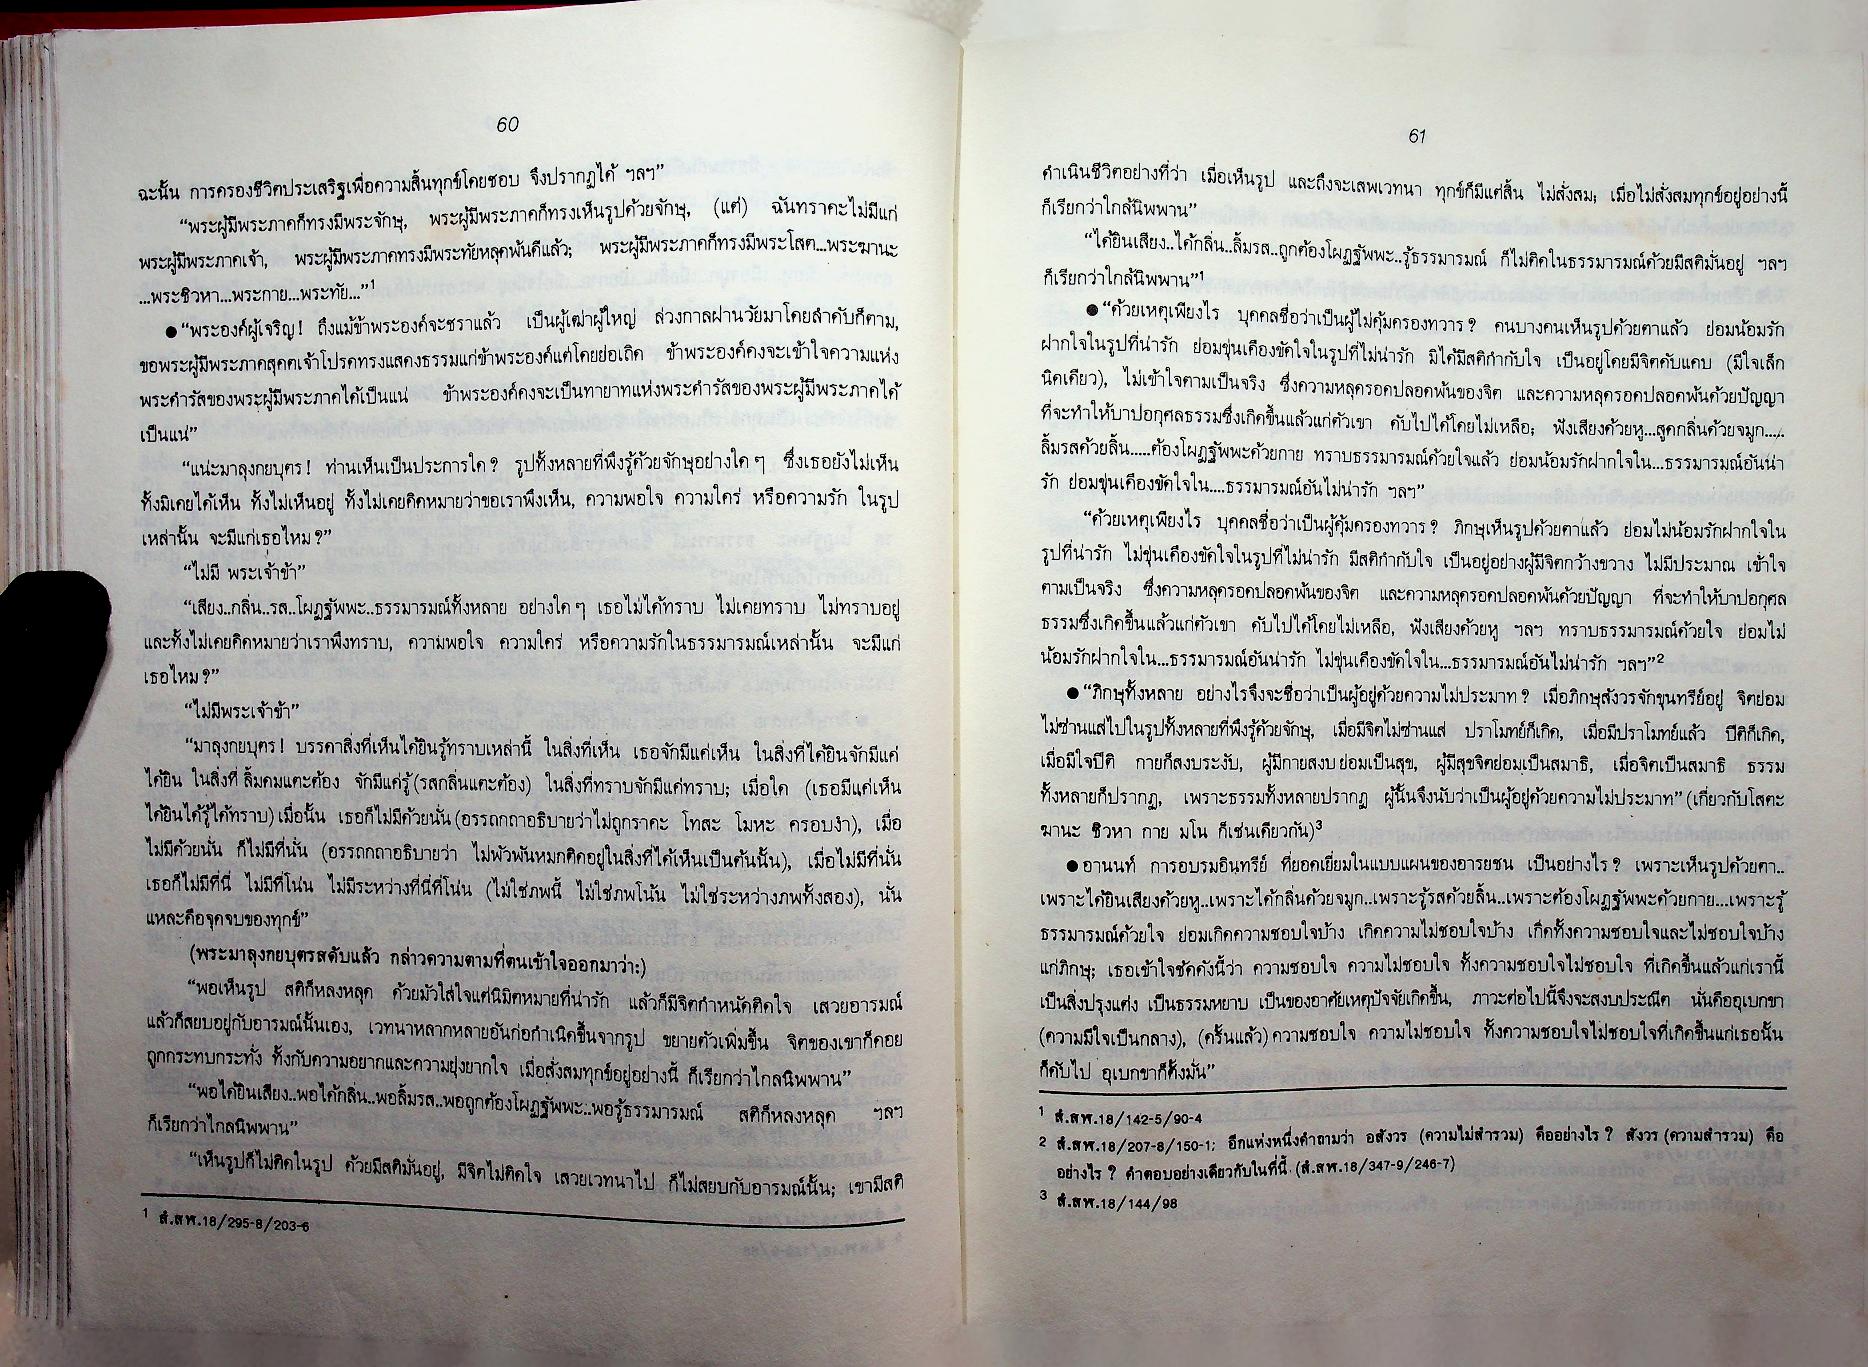 60
ฉะนั้น การครองชีวิตประเสริฐเพื่อความสิ้นทุกข์โดยชอบ จึงปรากฏได้ ฯลฯ”
“พระผู้มีพระภาคก็ทรงมีพระจักษุ, พระผู้มีพระภาคก็ทรงเห็นรูปด้วยจักษุ, (แต่) ฉันทราคะไม่มีแก่
พระผู้มีพระภาคเจ้า, พระผู้มีพระภาคทรงมีพระทัยหลุดพ้นดีแล้ว; พระผู้มีพระภาคก็ทรงมีพระโสต...พระฆานะ
...พระชิวหา...พระกาย...พระทัย...”1
●“พระองค์ผู้เจริญ! ถึงแม้ข้าพระองค์จะชราแล้ว เป็นผู้เฒ่าผู้ใหญ่ ล่วงกาลผ่านวัยมาโดยลำดับก็ตาม,
ขอพระผู้มีพระภาคสุคตเจ้าโปรดทรงแสดงธรรมแก่ข้าพระองค์แต่โดยย่อเถิด ข้าพระองค์คงจะเข้าใจความแห่ง
พระดำรัสของพระผู้มีพระภาคได้เป็นแน่ ข้าพระองค์คงจะเป็นทายาทแห่งพระดำรัสของพระผู้มีพระภาคได้
เป็นแน่”
“แน่ะมาลุงกยบุตร! ท่านเห็นเป็นประการใด? รูปทั้งหลายที่พึงรู้ด้วยจักษุอย่างใดๆ ซึ่งเธอยังไม่เห็น
ทั้งมิเคยได้เห็น ทั้งไม่เห็นอยู่ ทั้งไม่เคยคิดหมายว่าขอเราพึงเห็น, ความพอใจ ความใคร่ หรือความรัก ในรูป
เหล่านั้น จะมีแก่เธอไหม?”
“ไม่มี พระเจ้าข้า”
“เสียง..กลิ่น..รส..โผฏฐัพพะ..ธรรมารมณ์ทั้งหลาย อย่างใดๆ เธอไม่ได้ทราบ ไม่เคยทราบ ไม่ทราบอยู่
และทั้งไม่เคยคิดหมายว่าเราพึงทราบ, ความพอใจ ความใคร่ หรือความรักในธรรมารมณ์เหล่านั้น จะมีแก่
เธอไหม?”
“ไม่มีพระเจ้าข้า”
“มาลุงกยบุตร! บรรดาสิ่งที่เห็นได้ยินรู้ทราบเหล่านี้ ในสิ่งที่เห็น เธอจักมีแค่เห็น ในสิ่งที่ได้ยินจักมีแค่
ได้ยิน ในสิ่งที่ลิ้มดมแตะต้อง จักมีแค่รู้(รสกลิ่นแตะต้อง) ในสิ่งที่ทราบจักมีแค่ทราบ; เมื่อใด (เธอมีแค่เห็น
ได้ยินได้รู้ได้ทราบ)เมื่อนั้น เธอก็ไม่มีด้วยนั่น(อรรถกถาอธิบายว่าไม่ถูกราคะ โทสะ โมหะ ครอบงำ), เมื่อ
ไม่มีด้วยนั่น ก็ไม่มีที่นั่น (อรรถกถาอธิบายว่า ไม่พัวพันหมกติดอยู่ในสิ่งที่ได้เห็นเป็นต้นนั้น), เมื่อไม่มีที่นั่น
เธอก็ไม่มีที่นี่ ไม่มีที่โน่น ไม่มีระหว่างที่นี่ที่โน่น (ไม่ใช่ภพนี้ ไม่ใช่ภพโน้น ไม่ใช่ระหว่างภพทั้งสอง), นั่น
แหละคือจุดจบของทุกข์”
(พระมาลุงกยบุตรสดับแล้ว กล่าวความตามที่ตนเข้าใจออกมาว่า:)
“พอเห็นรูป สติก็หลงหลุด ด้วยมัวใส่ใจแต่นิมิตหมายที่น่ารัก แล้วก็มีจิตกำหนัดติดใจ เสวยอารมณ์
แล้วก็สยบอยู่กับอารมณ์นั้นเอง, เวทนาหลากหลายอันก่อกำเนิดขึ้นจากรูป ขยายตัวเพิ่มขึ้น จิตของเขาก็คอย
ถูกกระทบกระทั่ง ทั้งกับความอยากและความยุ่งยากใจ เมื่อสั่งสมทุกข์อยู่อย่างนี้ ก็เรียกว่าไกลนิพพาน”
“พอได้ยินเสียง..พอได้กลิ่น..พอลิ้มรส..พอถูกต้องโผฏฐัพพะ..พอรู้ธรรมารมณ์ สติก็หลงหลุด ฯลฯ
ก็เรียกว่าไกลนิพพาน”
“เห็นรูปก็ไม่ติดในรูป ด้วยมีสติมั่นอยู่, มีจิตไม่ติดใจ เสวยเวทนาไป ก็ไม่สยบกับอารมณ์นั้น; เขามีสติ
1 สํ.สฬ.18/295-8/203-6
61
ดำเนินชีวิตอย่างที่ว่า เมื่อเห็นรูป และถึงจะเสพเวทนา ทุกข์ก็มีแต่สิ้น ไม่สั่งสม; เมื่อไม่สั่งสมทุกข์อยู่อย่างนี้
ก็เรียกว่าใกล้นิพพาน”
“ได้ยินเสียง..ได้กลิ่น..ลิ้มรส..ถูกต้องโผฏฐัพพะ..รู้ธรรมารมณ์ ก็ไม่ติดในธรรมารมณ์ด้วยมีสติมั่นอยู่ ฯลฯ
ก็เรียกว่าใกล้นิพพาน”1
●“ด้วยเหตุเพียงไร บุคคลชื่อว่าเป็นผู้ไม่คุ้มครองทวาร? คนบางคนเห็นรูปด้วยตาแล้ว ย่อมน้อมรัก
ฝากใจในรูปที่น่ารัก ย่อมขุ่นเคืองขัดใจในรูปที่ไม่น่ารัก มิได้มีสติกำกับใจ เป็นอยู่โดยมีจิตคับแคบ (มีใจเล็ก
นิดเดียว), ไม่เข้าใจตามเป็นจริง ซึ่งความหลุดรอดปลอดพ้นของจิต และความหลุดรอดปลอดพ้นด้วยปัญญา
ที่จะทำให้บาปอกุศลธรรมซึ่งเกิดขึ้นแล้วแก่ตัวเขา ดับไปได้โดยไม่เหลือ; ฟังเสียงด้วยหู...สูดกลิ่นด้วยจมูก.....
ลิ้มรสด้วยลิ้น.....ต้องโผฏฐัพพะด้วยกาย ทราบธรรมารมณ์ด้วยใจแล้ว ย่อมน้อมรักฝากใจใน...ธรรมารมณ์อันน่า
รัก ย่อมขุ่นเคืองขัดใจใน....ธรรมารมณ์อันไม่น่ารัก ฯลฯ”
“ด้วยเหตุเพียงไร บุคคลชื่อว่าเป็นผู้คุ้มครองทวาร? ภิกษุเห็นรูปด้วยตาแล้ว ย่อมไม่น้อมรักฝากใจใน
รูปที่น่ารัก ไม่ขุ่นเคืองขัดใจในรูปที่ไม่น่ารัก มีสติกำกับใจ เป็นอยู่อย่างผู้มีจิตกว้างขวาง ไม่มีประมาณ เข้าใจ
ตามเป็นจริง ซึ่งความหลุดรอดปลอดพ้นของจิต และความหลุดรอดปลอดพ้นด้วยปัญญา ที่จะทำให้บาปอกุศล
ธรรมซึ่งเกิดขึ้นแล้วแก่ตัวเขา ดับไปได้โดยไม่เหลือ, ฟังเสียงด้วยหู ฯลฯ ทราบธรรมารมณ์ด้วยใจ ย่อมไม่
น้อมรักฝากใจใน...ธรรมารมณ์อันน่ารัก ไม่ขุ่นเคืองขัดใจใน...ธรรมารมณ์อันไม่น่ารัก ฯลฯ”2
●“ภิกษุทั้งหลาย อย่างไรจึงจะชื่อว่าเป็นผู้อยู่ด้วยความไม่ประมาท? เมื่อภิกษุสังวรจักขุนทรีย์อยู่ จิตย่อม
ไม่ซ่านแส่ไปในรูปทั้งหลายที่พึงรู้ด้วยจักษุ, เมื่อมีจิตไม่ซ่านแส่ ปราโมทย์ก็เกิด, เมื่อมีปราโมทย์แล้ว ปีติก็เกิด,
เมื่อมีใจปีติ กายก็สงบระงับ, ผู้มีกายสงบย่อมเป็นสุข, ผู้มีสุขจิตย่อมเป็นสมาธิ, เมื่อจิตเป็นสมาธิ ธรรม
ทั้งหลายก็ปรากฏ, เพราะธรรมทั้งหลายปรากฏ ผู้นั้นจึงนับว่าเป็นผู้อยู่ด้วยความไม่ประมาท”(เกี่ยวกับโสตะ
ฆานะ ชิวหา กาย มโน ก็เช่นเดียวกัน)3
●อานนท์ การอบรมอินทรีย์ ที่ยอดเยี่ยมในแบบแผนของอารยชน เป็นอย่างไร? เพราะเห็นรูปด้วยตา..
เพราะได้ยินเสียงด้วยหู..เพราะได้กลิ่นด้วยจมูก..เพราะรู้รสด้วยลิ้น..เพราะต้องโผฏฐัพพะด้วยกาย...เพราะรู้
ธรรมารมณ์ด้วยใจ ย่อมเกิดความชอบใจบ้าง เกิดความไม่ชอบใจบ้าง เกิดทั้งความชอบใจและไม่ชอบใจบ้าง
แก่ภิกษุ; เธอเข้าใจชัดดังนี้ว่า ความชอบใจ ความไม่ชอบใจ ทั้งความชอบใจไม่ชอบใจ ที่เกิดขึ้นแล้วแก่เรานี้
เป็นสิ่งปรุงแต่ง เป็นธรรมหยาบ เป็นของอาศัยเหตุปัจจัยเกิดขึ้น, ภาวะต่อไปนี้จึงจะสงบประณีต นั่นคืออุเบกขา
(ความมีใจเป็นกลาง), (ครั้นแล้ว)ความชอบใจ ความไม่ชอบใจ ทั้งความชอบใจไม่ชอบใจที่เกิดขึ้นแก่เธอนั้น
ก็ดับไป อุเบกขาก็ตั้งมั่น”
1 สํ.สฬ.18/142-5/90-4
2 สํ.สฬ.18/207-8/150-1; อีกแห่งหนึ่งคำถามว่า อสังวร (ความไม่สำรวม) คืออย่างไร? สังวร(ความสำรวม) คือ
อย่างไร? คำตอบอย่างเดียวกับในที่นี้ (สํ.สฬ.18/347-9/246-7)
3 สํ.สฬ.18/144/98